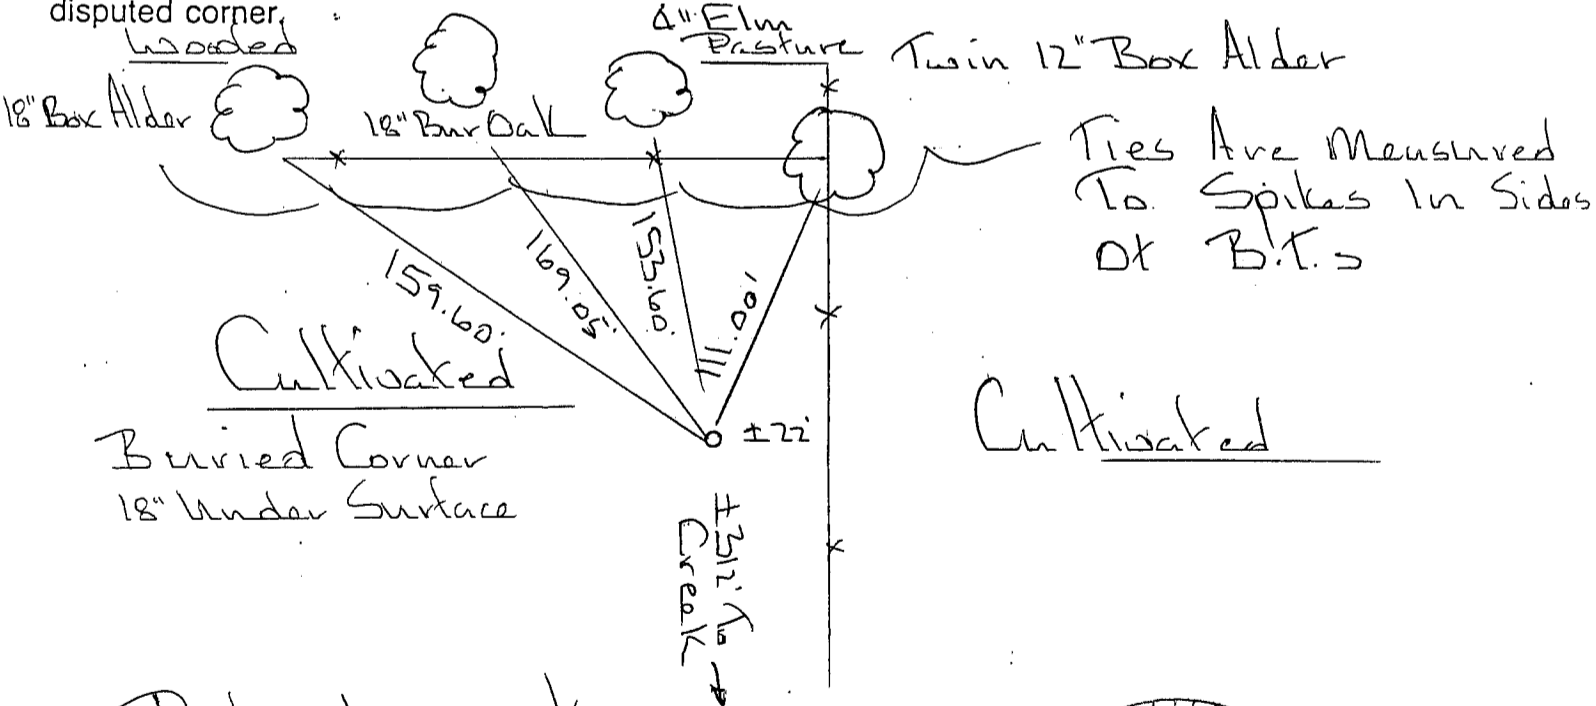 disputed corner.
Wooded
4" Elm
Pasture
Twin 12" Box Alder
18" Box Alder
18" Bur Oak
Ties Are Measured
To Spikes In Sides
Of B.T.s
159.60'
169.05'
153.60'
111.00'
Cultivated
±22'
Cultivated
Buried Corner
18" Under Surface
±312' To
Creek